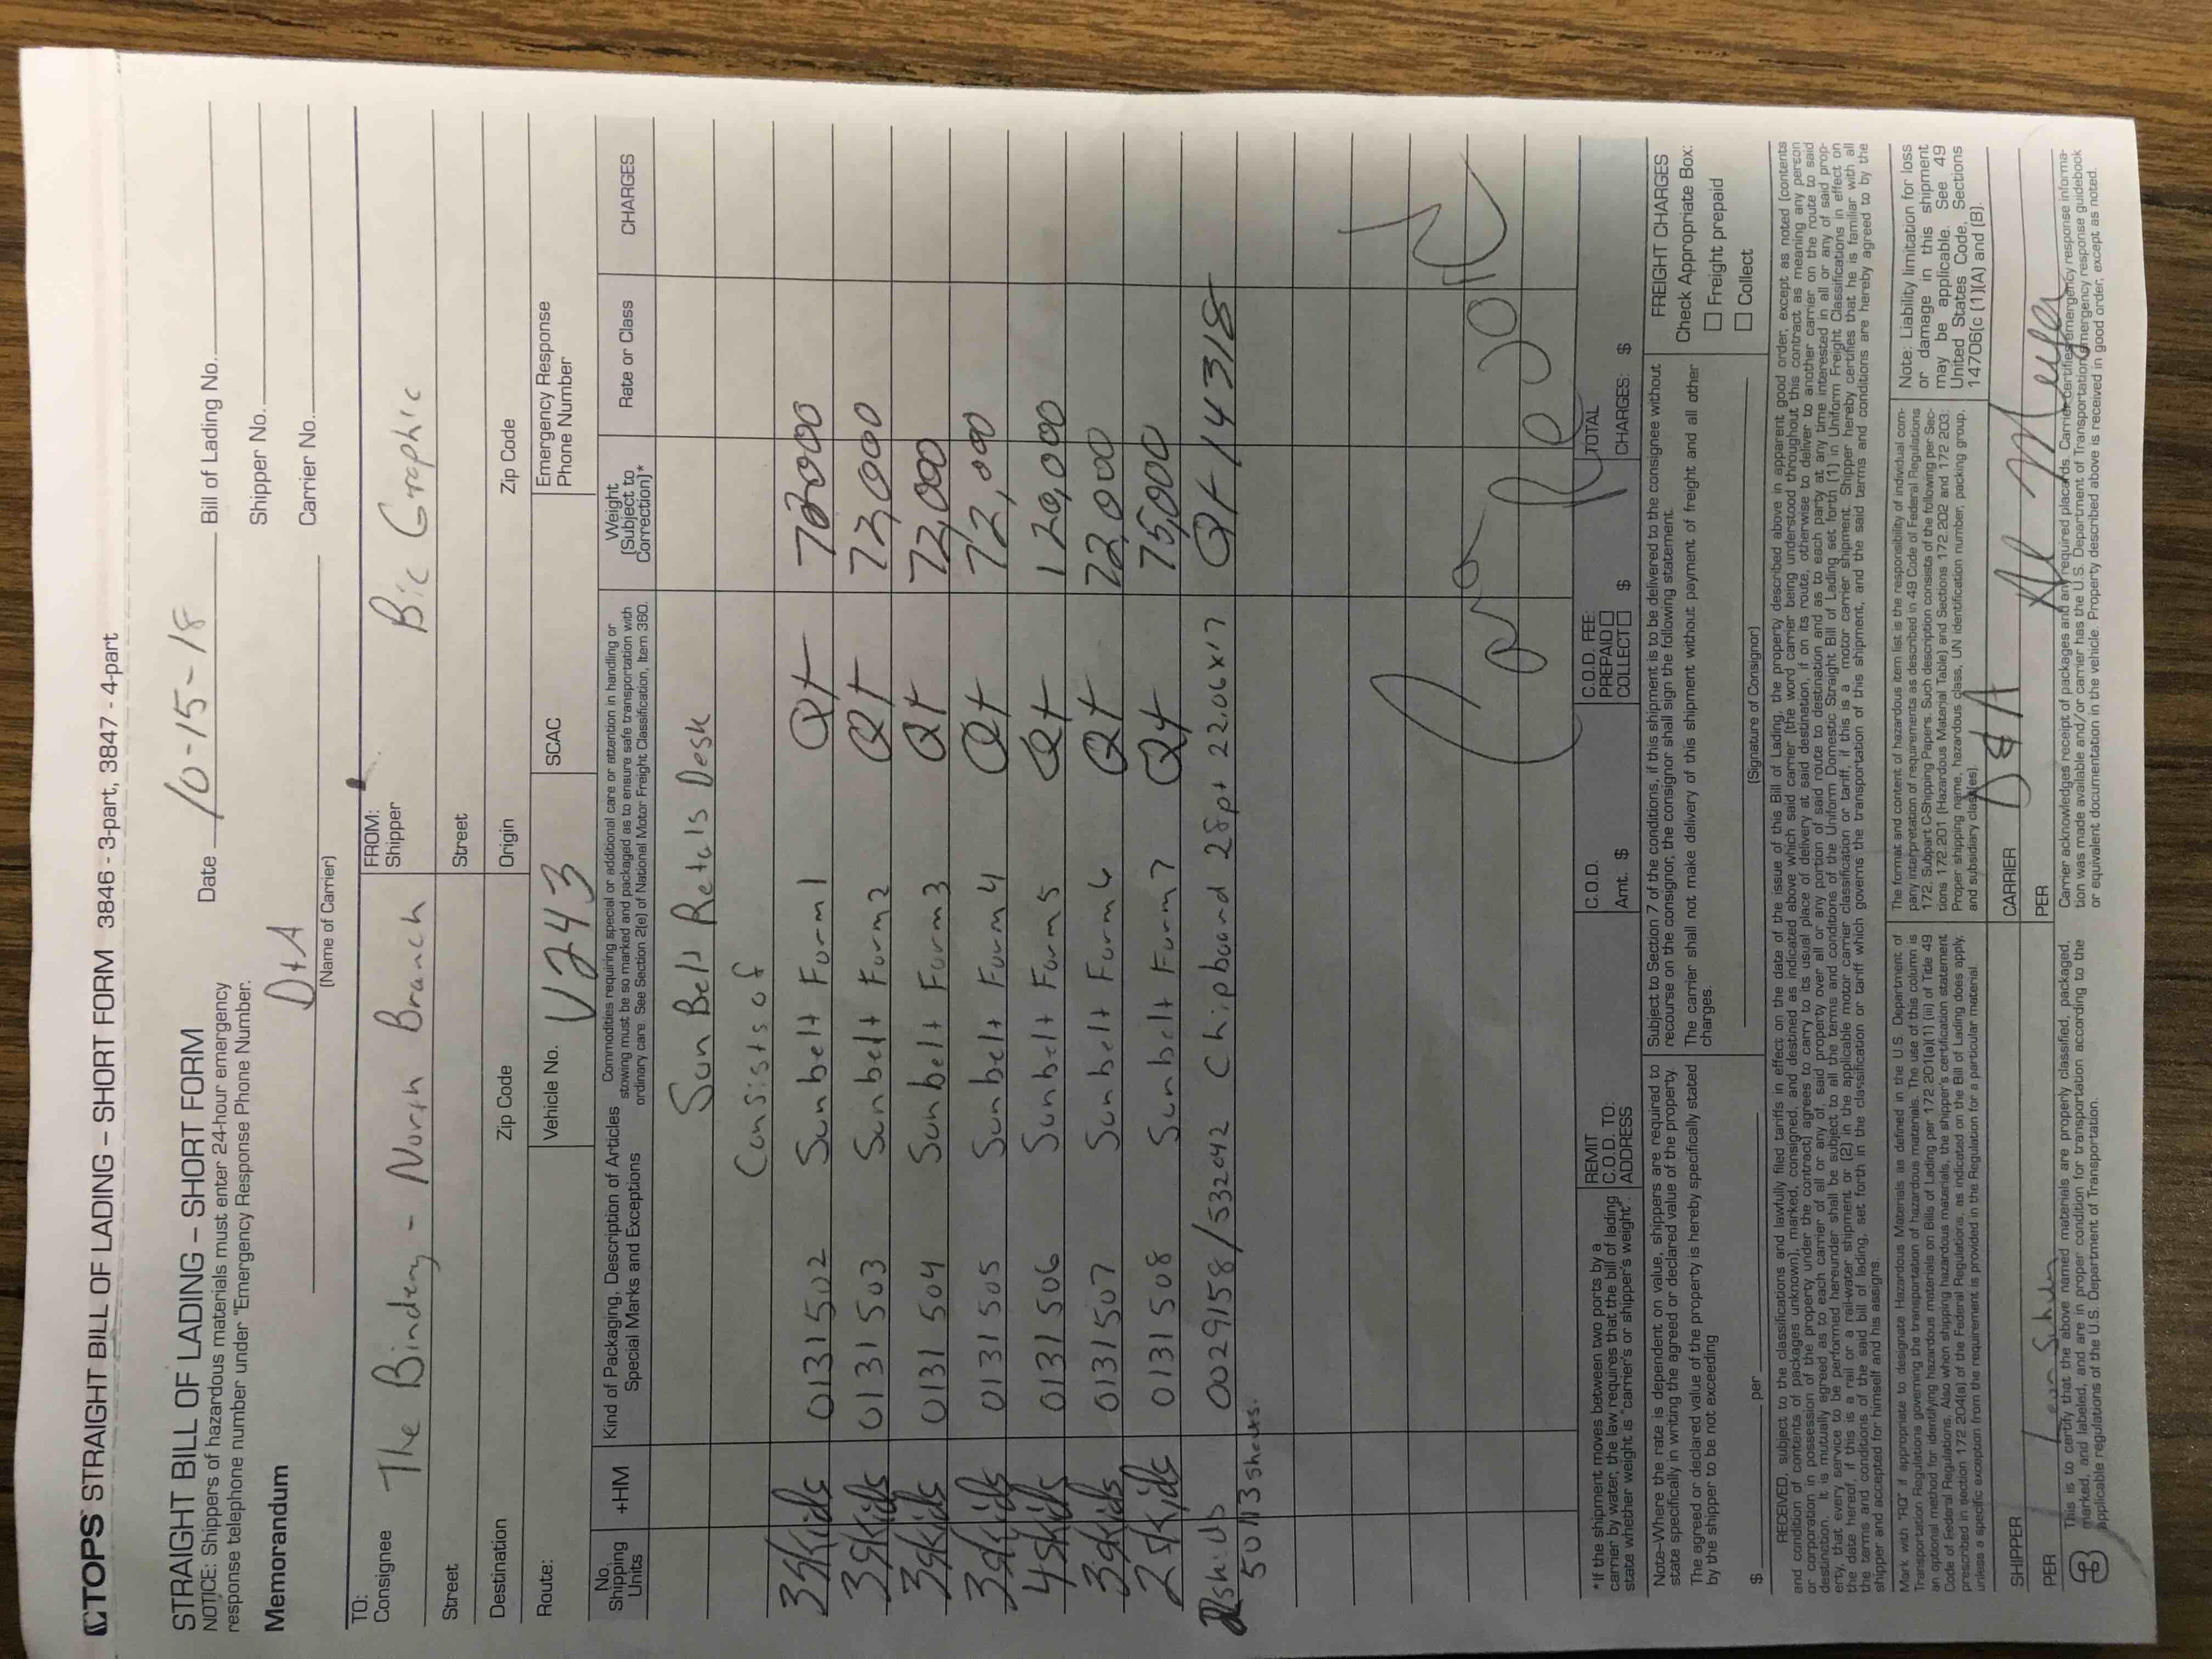 TOPS STRAIGHT BILL OF LADING – SHORT FORM 3846 - 3-part, 3847 - 4-part
STRAIGHT BILL OF LADING – SHORT FORM
NOTICE: Shippers of hazardous materials must enter 24-hour emergency
response telephone number under "Emergency Response Phone Number.
Date 10-15-18
Bill of Lading No.
Shipper No.
Carrier No.
Memorandum
D+A
(Name of Carrier)
TO:
Consignee The Bindery - North Branch
FROM:
Shipper Bic Graphic
Street
Street
Destination Zip Code
Origin Zip Code
Route:
Vehicle No. V243
SCAC
Emergency Response
Phone Number
No.
Shipping
Units
+HM
Kind of Packaging, Description of Articles
Special Marks and Exceptions
Commodities requiring special or additional care or attention in handling or
stowing must be so marked and packaged as to ensure safe transportation with
ordinary care. See Section 2(e) of National Motor Freight Classification, Item 360.
Weight
(Subject to
Correction)*
Rate or Class
CHARGES
Sun Belt Retals Desk
Consists of
3 skids 0131502 Sunbelt Form 1 Qt
3 skids 0131503 Sunbelt Form 2 Qt 72,000
3 skids 0131504 Sunbelt Form 3 Qt 72,000
3 skids 0131505 Sunbelt Form 4 Qt 72,000
4 skids 0131506 Sunbelt Form 5 Qt 120,000
3 skids 0131507 Sunbelt Form 6 Qt 72,000
2 skids 0131508 Sunbelt Form 7 Qt 75,000
skids 0029158/532042 Chipboard 28pt 22.06x17 Qt 14318
50113 sheets.
*If the shipment moves between two ports by a
carrier by water, the law requires that the bill of lading
state whether weight is "carrier's or shipper's weight".
REMIT
C.O.D. TO:
ADDRESS
C.O.D.
Amt. $
C.O.D. FEE:
PREPAID
COLLECT $
TOTAL
CHARGES: $
Note–Where the rate is dependent on value, shippers are required to
state specifically in writing the agreed or declared value of the property.
The agreed or declared value of the property is hereby specifically stated
by the shipper to be not exceeding
$ per
Subject to Section 7 of the conditions, if this shipment is to be delivered to the consignee without
recourse on the consignor, the consignor shall sign the following statement.
The carrier shall not make delivery of this shipment without payment of freight and all other
charges.
(Signature of Consignor)
FREIGHT CHARGES
Check Appropriate Box:
Freight prepaid
Collect
RECEIVED, subject to the classifications and lawfully filed tariffs in effect on the date of the issue of this Bill of Lading, the property described above in apparent good order, except as noted (contents
and condition of contents of packages unknown), marked, consigned, and destined as indicated above which said carrier (the word carrier being understood throughout this contract as meaning any person
or corporation in possession of the property under the contract) agrees to carry to its usual place of delivery at said destination, if on its route, otherwise to deliver to another carrier on the route to said
destination. It is mutually agreed as to each carrier of all or any of, said property over all or any portion of said route to destination and as to each party at any time interested in all or any of said prop-
erty, that every service to be performed hereunder shall be subject to all the terms and conditions of the Uniform Domestic Straight Bill of Lading set forth (1) in Uniform Freight Classifications in effect on
the date hereof, if this is a rail or a rail-water shipment or (2) in the applicable motor carrier classification or tariff, if this is a motor carrier shipment. Shipper hereby certifies that he is familiar with all
the terms and conditions of the said bill of lading, set forth in the classification or tariff which governs the transportation of this shipment, and the said terms and conditions are hereby agreed to by the
shipper and accepted for himself and his assigns.
Mark with "RQ" if appropriate to designate Hazardous Materials as defined in the U.S. Department of
Transportation Regulations governing the transportation of hazardous materials. The use of this column is
an optional method for identifying hazardous materials on Bills of Lading per 172.201(a)(1) (iii) of Title 49
Code of Federal Regulations. Also when shipping hazardous materials, the shipper's certification statement
prescribed in section 172.204(a) of the Federal Regulations, as indicated on the Bill of Lading does apply,
unless a specific exception from the requirement is provided in the Regulation for a particular material.
The format and content of hazardous item list is the responsibility of individual com-
pany interpretation of requirements as described in 49 Code of Federal Regulations
172. Subpart C-Shipping Papers. Such description consists of the following per Sec-
tions 172.201 (Hazardous Material Table) and Sections 172 202 and 172 203:
Proper shipping name, hazardous class, UN identification number, packing group,
and subsidiary class(es).
Note: Liability limitation for loss
or damage in this shipment
may be applicable. See 49
United States Code, Sections
14706(c (1)(A) and (B).
SHIPPER
CARRIER D&A
PER
PER Al Meyer
This is to certify that the above named materials are properly classified, packaged,
marked, and labeled, and are in proper condition for transportation according to the
applicable regulations of the U.S. Department of Transportation.
Carrier acknowledges receipt of packages and any required placards. Carrier certifies emergency response informa-
tion was made available and/or carrier has the U.S. Department of Transportation emergency response guidebook
or equivalent documentation in the vehicle. Property described above is received in good order, except as noted.